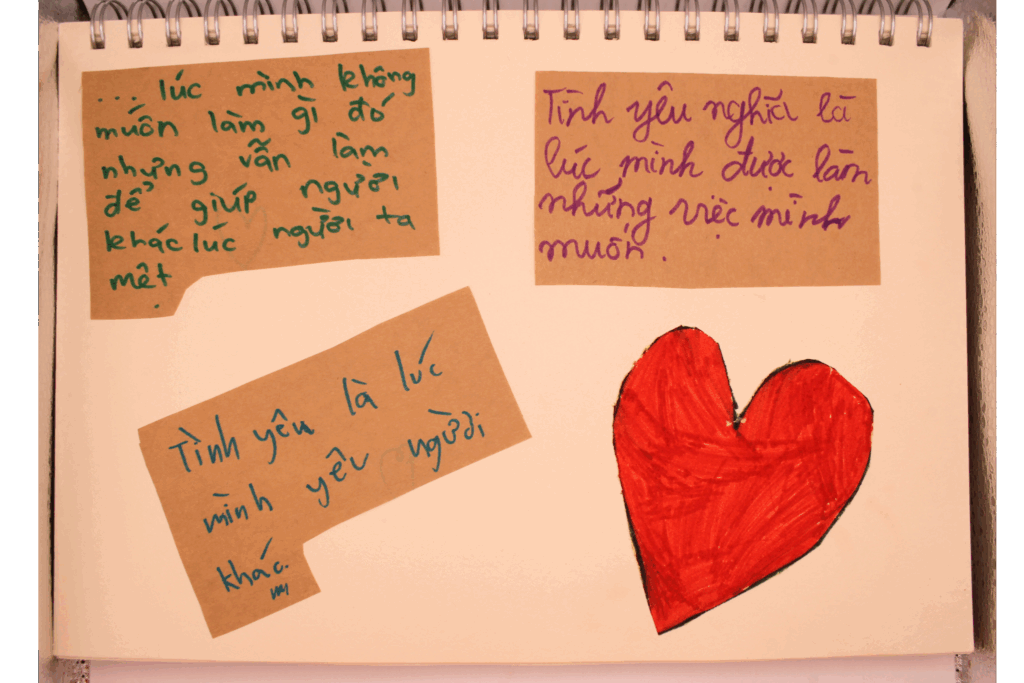 ... lúc mình không
muốn làm gì đó
nhưng vẫn làm
để giúp người
khác lúc người ta
mệt.
Tình yêu nghĩa là
lúc mình được làm
những việc mình
muốn.
Tình yêu là lúc
mình yêu người
khác.